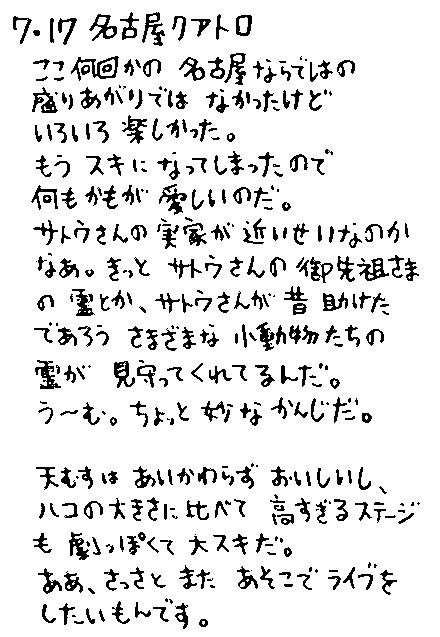 7.17 名古屋クアトロ
ここ何回かの 名古屋ならではの
盛りあがりでは なかったけど
いろいろ 楽しかった。
もう スキに なってしまったので
何もかもが 愛しいのだ。
サトウさんの 実家が 近いせいなのか
なあ。きっと サトウさんの 御先祖さま
の 霊とか、サトウさんが 昔 助けた
であろう さまざまな 小動物たちの
霊が 見守ってくれてるんだ。
う〜む。ちょっと 妙な かんじだ。
天むすは あいかわらず おいしいし、
ハコの大きさに 比べて 高すぎるステージ
も 劇っぽくて 大スキだ。
ああ、さっさと また あそこで ライブを
したいもんです。